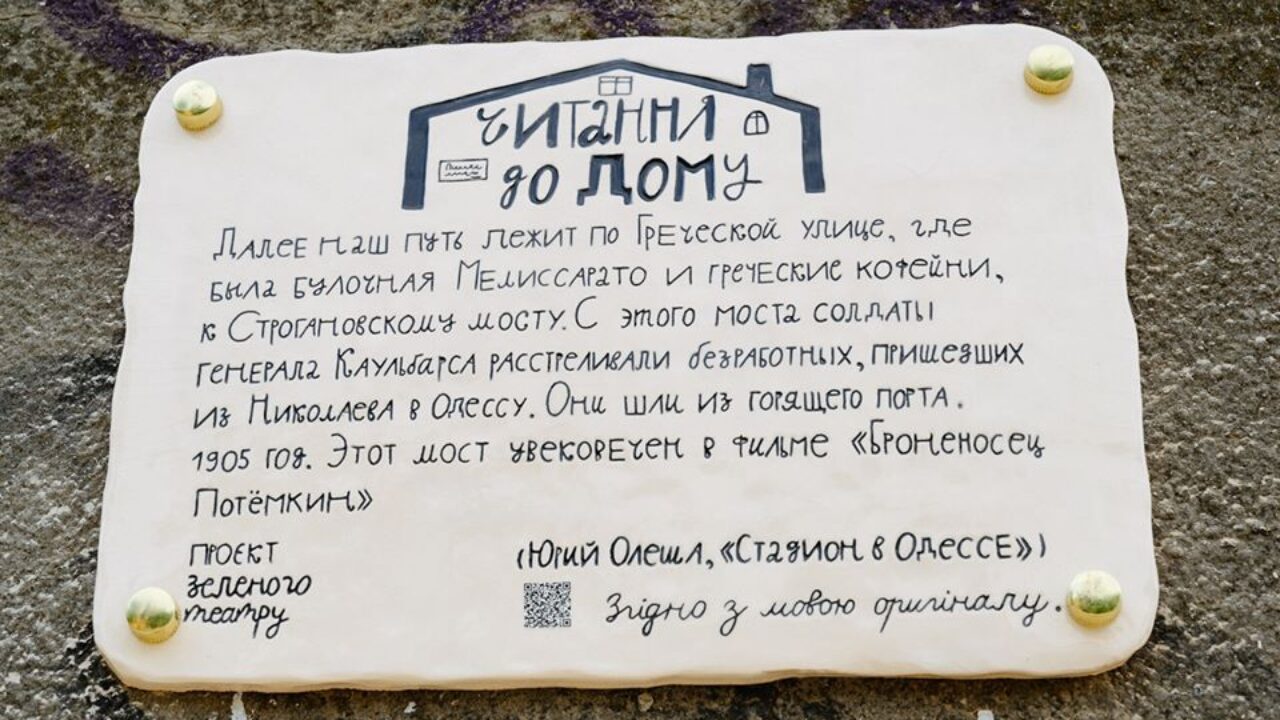 Читання
до дому
Далее наш путь лежит по Греческой улице, где
была булочная Мелиссарато и греческие кофейни,
к Строгановскому мосту. С этого моста солдаты
генерала Каульбарса расстреливали безработных, пришедших
из Николаева в Одессу. Они шли из горящего порта.
1905 год. Этот мост увековечен в фильме «Броненосец
Потёмкин»
(Юрий Олеша, «Стадион в Одессе»)
проєкт
зеленого
театру
Згідно з мовою оригіналу.